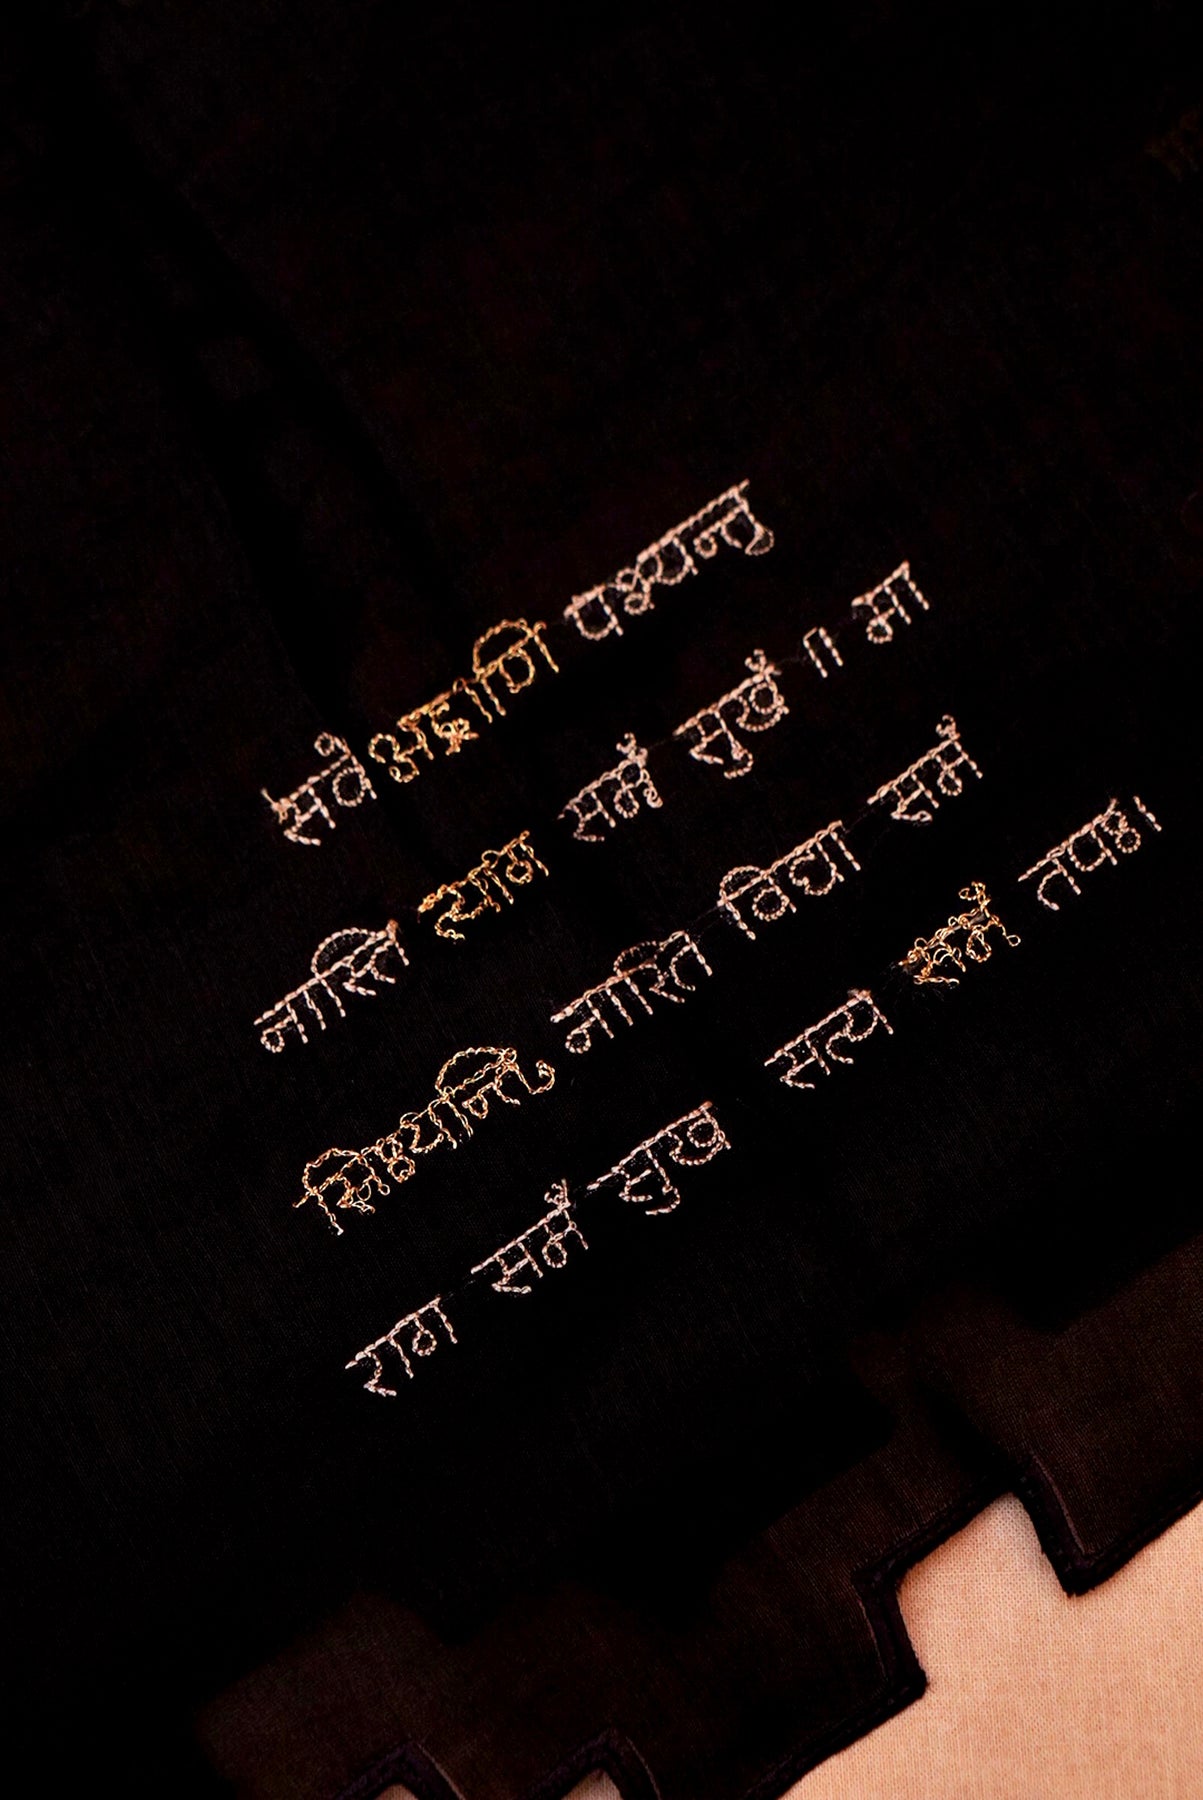 सर्वे भद्राणि पश्यन्तु
नास्ति त्याग समं सुखं ॥ मा
नास्ति विद्या समं
राग समं दुख सत्य समं तपः।